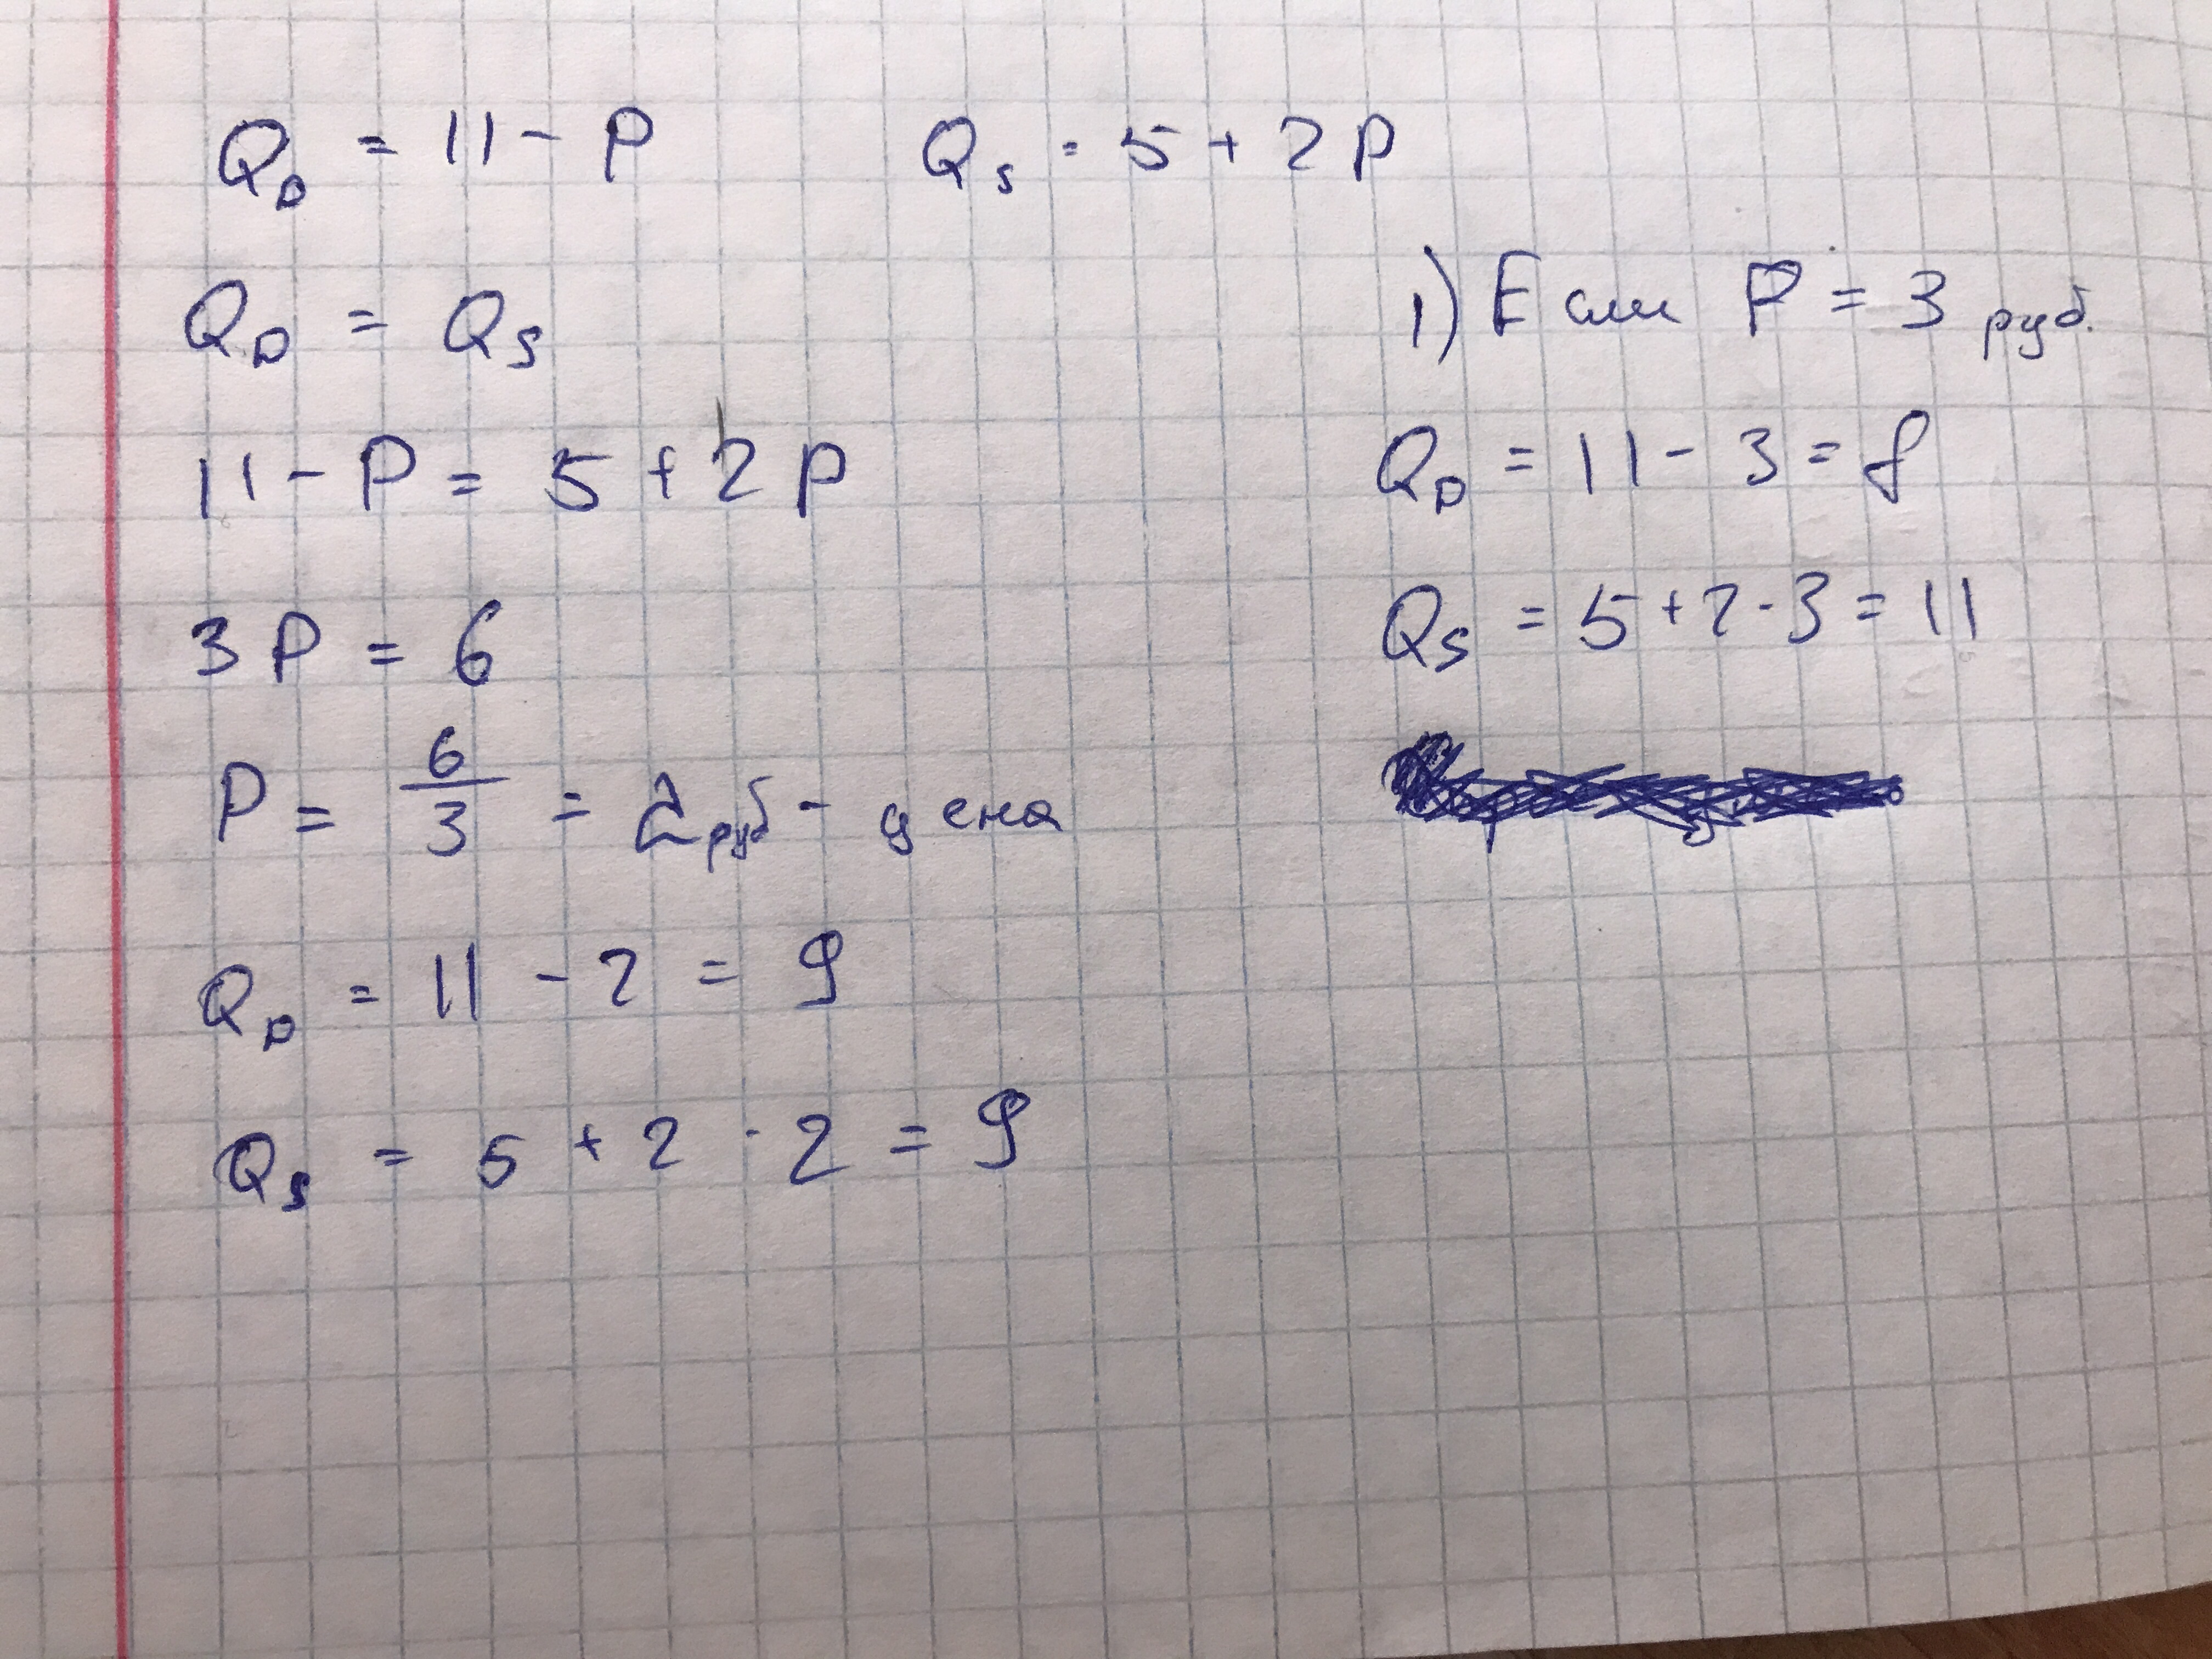 Q_D = 11 - P Q_S = 5 + 2P
Q_D = Q_S
11 - P = 5 + 2P
3P = 6
P = 6/3 = 2 руб - цена
Q_D = 11 - 2 = 9
Q_S = 5 + 2 · 2 = 9
1) Если P = 3 руб.
Q_D = 11 - 3 = 8
Q_S = 5 + 2 · 3 = 11